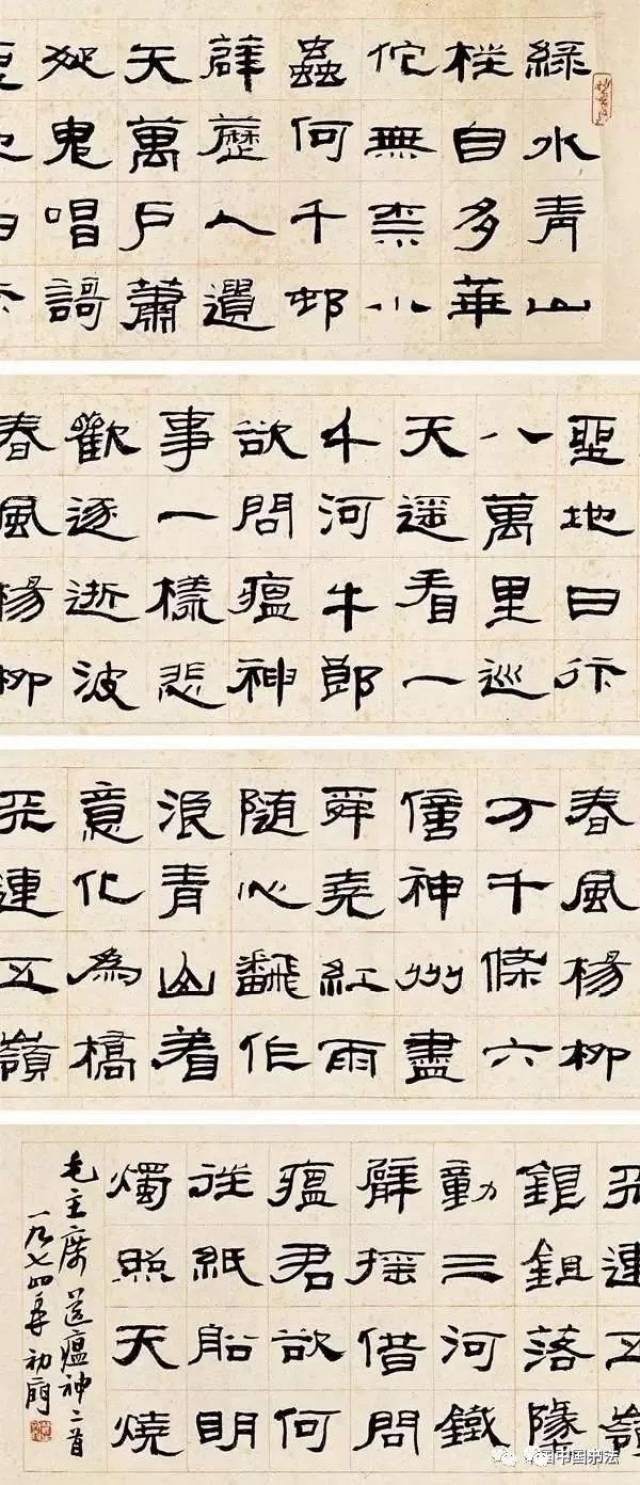 綠水青山
枉自多華
佗無柰小
蟲何千邨
薜歷人遺
矢萬戶蕭
疏鬼唱謌
坐地日行
八萬里巡
天遥看一
千河牛郎
欲問瘟神
事一樣悲
歡逐逝波
春風楊柳
春風楊柳
万千條六
億神州盡
舜堯紅雨
随心飜作
浪青山着
意化為橋
天連五嶺
天連五嶺
銀鉏落墬
動三河鐵
臂摇借問
瘟君欲何
往紙船明
燭照天燒
毛主席送瘟神二首
一九七四年初
中国书法